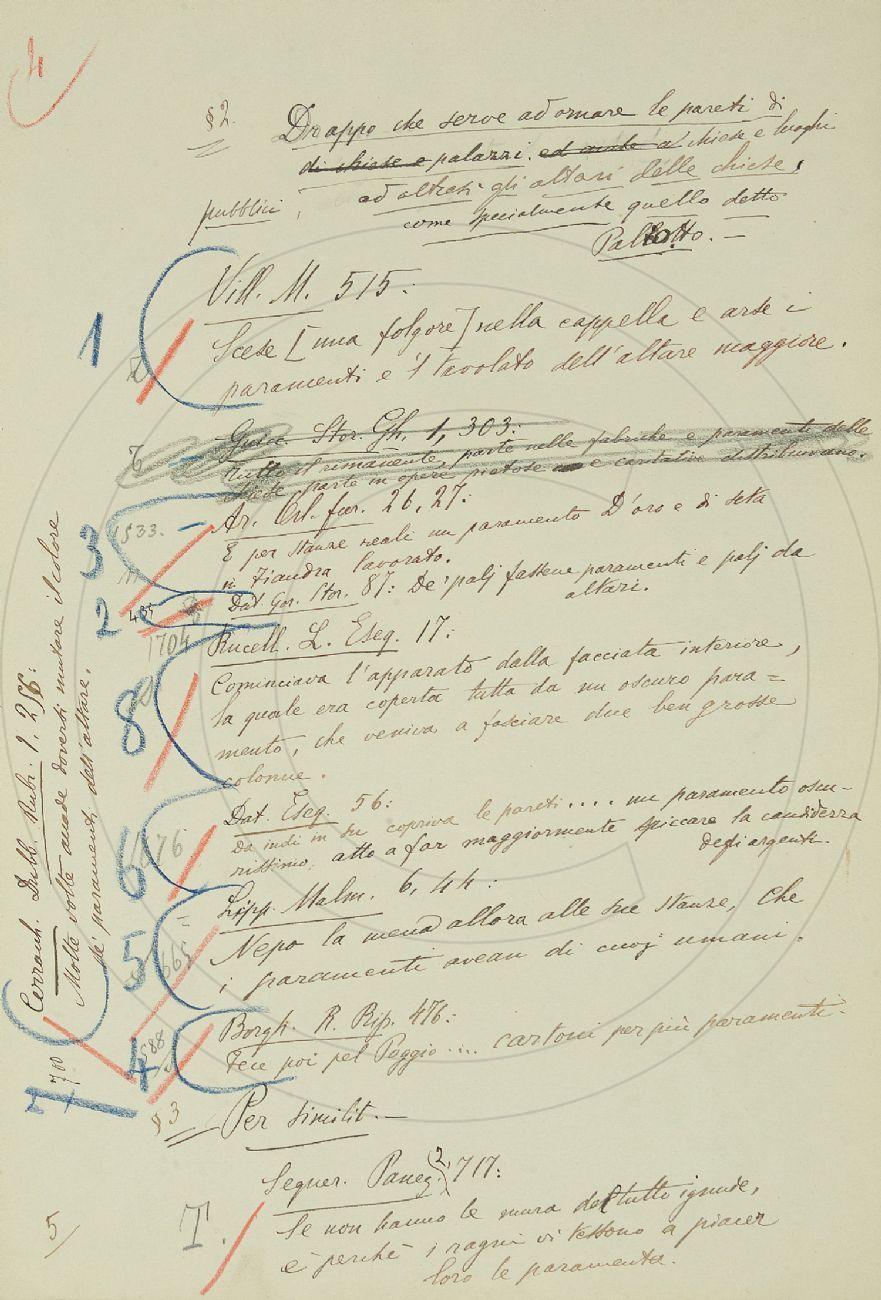 § 2.
Drappo che serve ad ornare le pareti di
di chiese e palazzi ed anche a' chiese e luoghi
pubblici, ad altresì gli altari delle chiese,
come specialmente quello detto
Paliotto. —
1
Vill. M. 515:
Scese [una folgore] nella cappella e arse i
paramenti e 'l tavolato dell'altare maggiore.
T
Guicc. Stor. Gh. 1, 303:
tutto il rimanente, parte nelle fabriche e paramenti delle
chiese parte in opere pietose e caritative distribuivano.
3
1533.
Ar. Orl. fur. 26, 27:
E per stanze reali un paramento D'oro e di seta
in Fiandra lavorato.
2
Dat. Gor. Stor. 87: De' palj fassene paramenti e palj da
altari.
1704
8
Rucell. L. Eseq. 17:
Cominciava l'apparato dalla facciata interiore,
la quale era coperta tutta da un oscuro para=
mento, che veniva a fasciare due ben grosse
colonne.
6
1676
Dat. Eseq. 56:
Da indi in su copriva le pareti.... un paramento oscu-
rissimo atto a far maggiormente spiccare la candidezza
degli argenti.
5
1665
Lipp. Malm. 6, 44:
Nepo la menò allora alle sue stanze, che
i paramenti avean di cuoj umani.
4
588
Borgh. R. Rip. 476:
Fece poi pel Poggio .... cartoni per più paramenti.
7
700
Cerrach. Dubb. Rubr. 1, 256:
Molte volte accade doversi mutare il colore
de' paramenti dell'altare.
§ 3
Per similit. —
T.
Segner. Paneg. 2, 717:
Se non hanno le mura del tutto ignude,
è perchè i ragni vi tessono a piacer
loro le paramenta.
5/